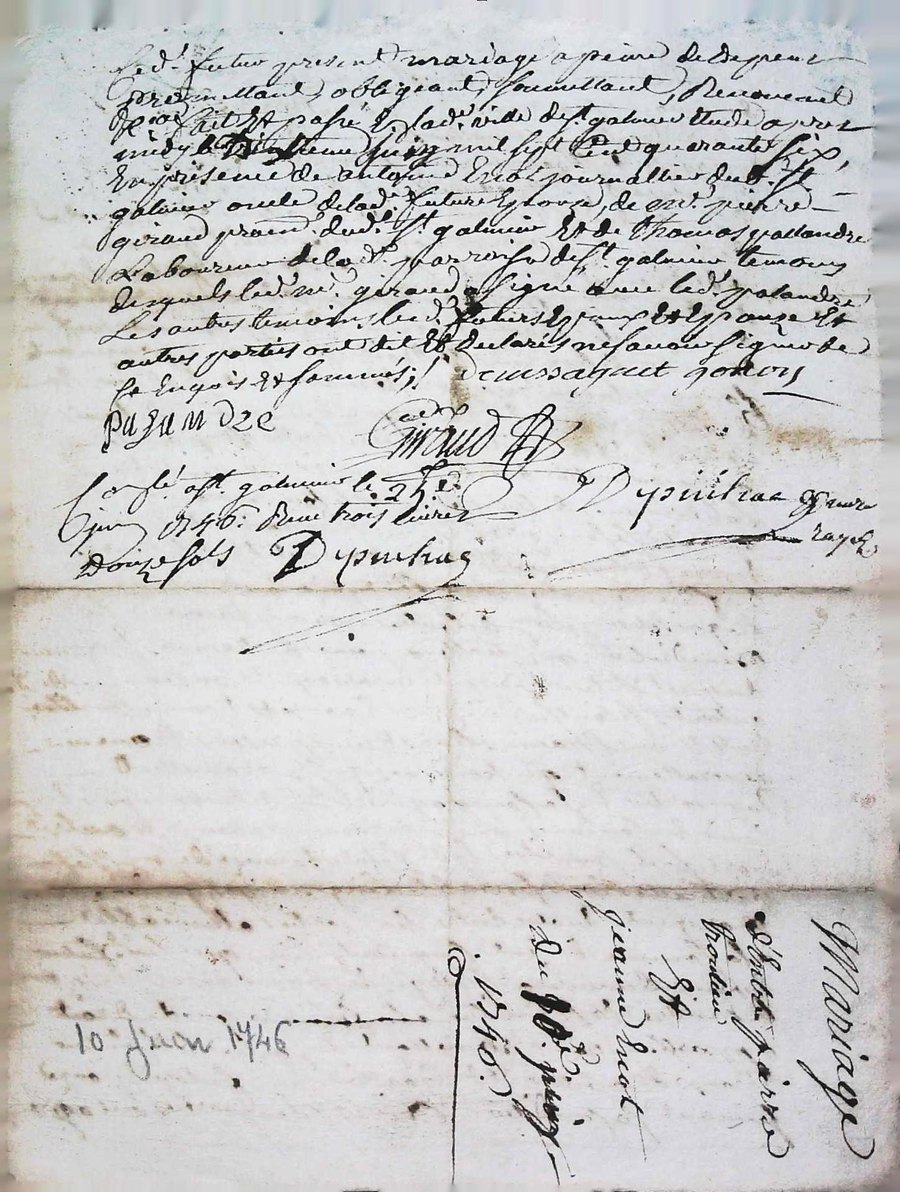 led.t futur present mariage a peine de depens
promettant, obligeant, soumettant, Renoncant
fait et passé a lad.e ville de s.t galmier etude apres
midy le juin mil sept Cent quarante six,
En presence de antoine Eriot journallier dud. S.t
galmier oncle de lad.e future Epouse, de m.e pierre
giraud dud.t S.t galmier Et de thomas pallandre
Laboureur de lad.e parroisse de S.t galmier temoins
desquels led.t m.e giraud a signé avec led.t palandre
Les autres temoins, led. futurs Epoux Et Epouze Et
autres parties ont dit Et declarés ne scavoir signer de
ce Enquis Et sommés;
pasandre
Giraud
Conlé. a S.t galmier le
juin 1746. Receu trois livres
Douze sols Dypinhac
Dypinhac
Mariage
d'Imbert pierre
Et
Jeanne Eriot
du 10.e juin
1746.
10 Juin 1746